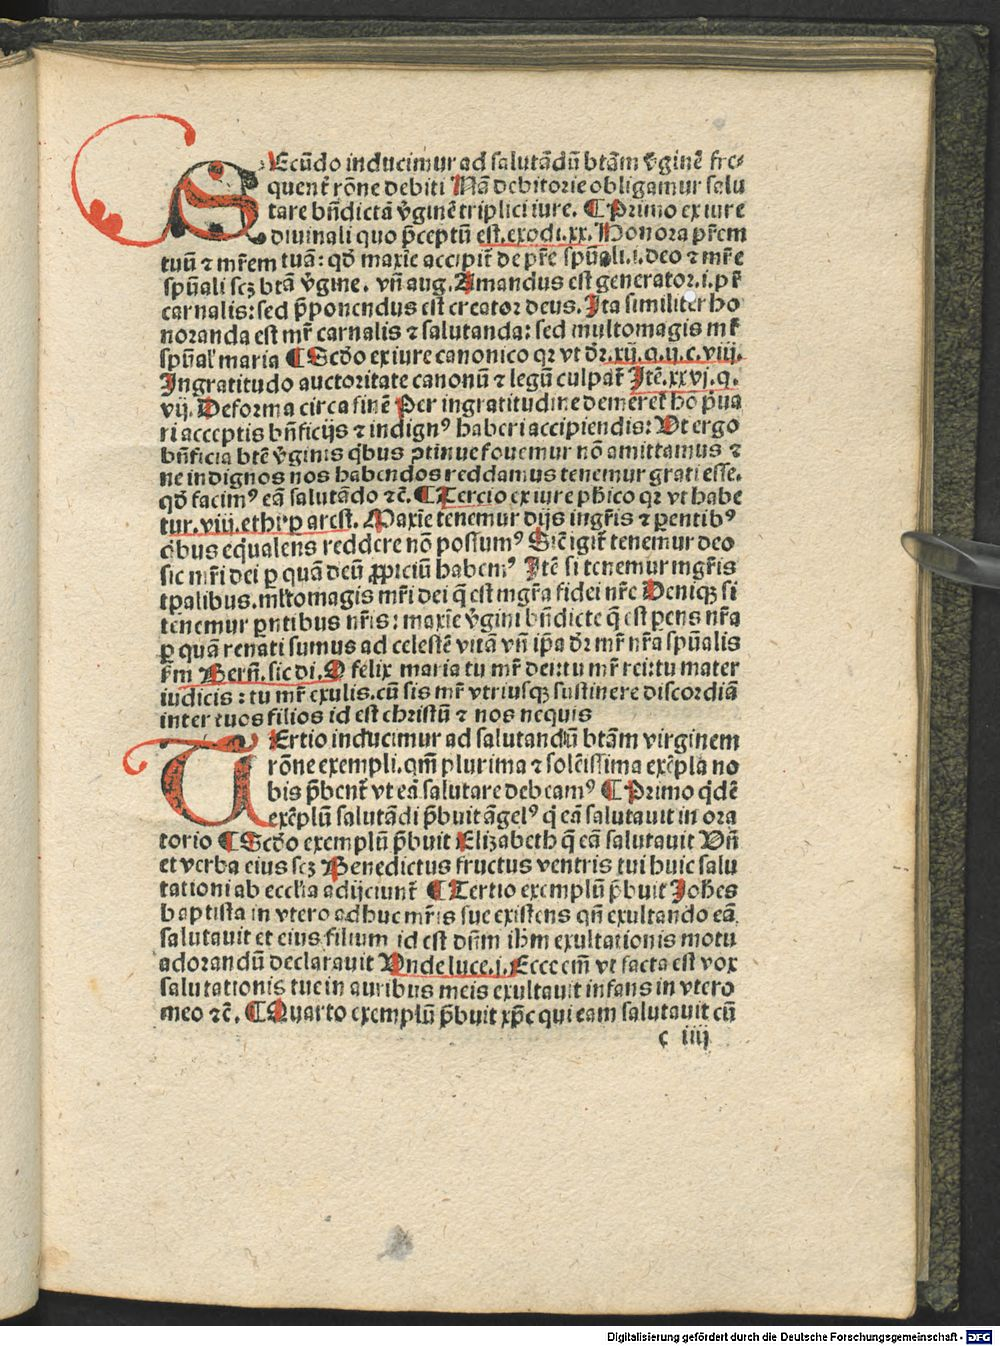 SEcūdo inducimur ad salutādū btām v̄ginē fre⸗
quent̄ rōne debiti Nā debitorie obligamur salu
tare bn̄dictā v̄ginē triplici iure. ¶ Primo ex iure
diuinali quo p̄ceptū est. exodi. xx. Honora pr̄em
tuū ⁊ mr̄em tuā: qd̓ maxīe accipit̄ de pr̄e spūali .i. deo ⁊ mr̄e
spūali scꝫ btā v̄gine. vn̄ aug. Amandus est generator .i. pr̄
carnalis: sed p̄ponendus est creator deus. Ita similiter ho
noranda est mr̄ carnalis ⁊ salutanda: sed multomagis mr̄
spūal' maria ¶ Scd̓o ex iure canonico qꝛ vt dr̄. xij. q. ij. c. viij.
Ingratitudo auctoritate canonū ⁊ legū culpat̄ Itē. xxvj. q.
vij. Deforma circa finē Per ingratitudine demeret̄ ho p̄ua
ri acceptis bn̄ficijs ⁊ indignꝰ haberi accipiendis: Vt ergo
bn̄ficia btē v̄ginis q̇bus ꝯtinue fouemur nō amittamus ⁊
ne indignos nos habendos reddamus tenemur grati esse.
qd̓ facimꝰ eā salutādo ⁊c̄. ¶ Tercio ex iure ph̄ico qꝛ vt habe
tur. viij. ethi. ꝑ arest. Maxīe tenemur dijs ingr̄is ⁊ ꝑentibꝰ
q̇bus eq̇ualens reddere nō possumꝰ Sic̄ igit̄ tenemur deo
sic mr̄i dei ꝑ quā deū ꝓpiciū habemꝰ Itē si tenemur mgr̄is
tp̄alibus. ml̄tomagis mr̄i dei q̄ est mgr̄a fidei nr̄e Deniqꝫ si
tenemur ꝑntibus nr̄is: maxīe v̄gini bn̄dicte q̄ est ꝑens nr̄a
ꝑ quā renati sumus ad celestē vitā vn̄ ip̄a dr̄ mr̄ nr̄a spūalis
fm̄ Bern̄. sic di. O felix maria tu mr̄ dei: tu mr̄ rei: tu mater
iudicis: tu mr̄ exulis. cū sis mr̄ vtriusqꝫ sustinere discordiā
inter tuos filios id est christū ⁊ nos nequis
TErtio inducimur ad salutandū btām virginem
rōne exempli. qm̄ plurima ⁊ solēissima exēpla no
bis p̄bent̄ vt eā salutare debeamꝰ ¶ Primo q̇dē
exēplū salutādi p̄buit āgelꝰ q̇ eā salutauit in ora
torio ¶ Scd̓o exemplū p̄buit Elizabeth q̄ eā salutauit Vn̄
et verba eius scꝫ Benedictus fructus ventris tui huic salu
tationi ab ecclīa adijciunt̄ ¶ Tertio exemplū p̄buit Joh̄es
baptista in vtero adhuc mr̄is sue existens qn̄ exultando eā
salutauit et eius filium id est dn̄m ih̄m exultationis motu
adorandū declarauit Vnde luce. j. Ecce em̄ vt facta est vox
salutationis tue in auribus meis exultauit infans in vtero
meo ⁊c̄. ¶ Quarto exemplū p̄buit xp̄c qui eam salutauit cū
c iiij
Digitalisierung gefördert durch die Deutsche Forschungsgemeinschaft - DFG